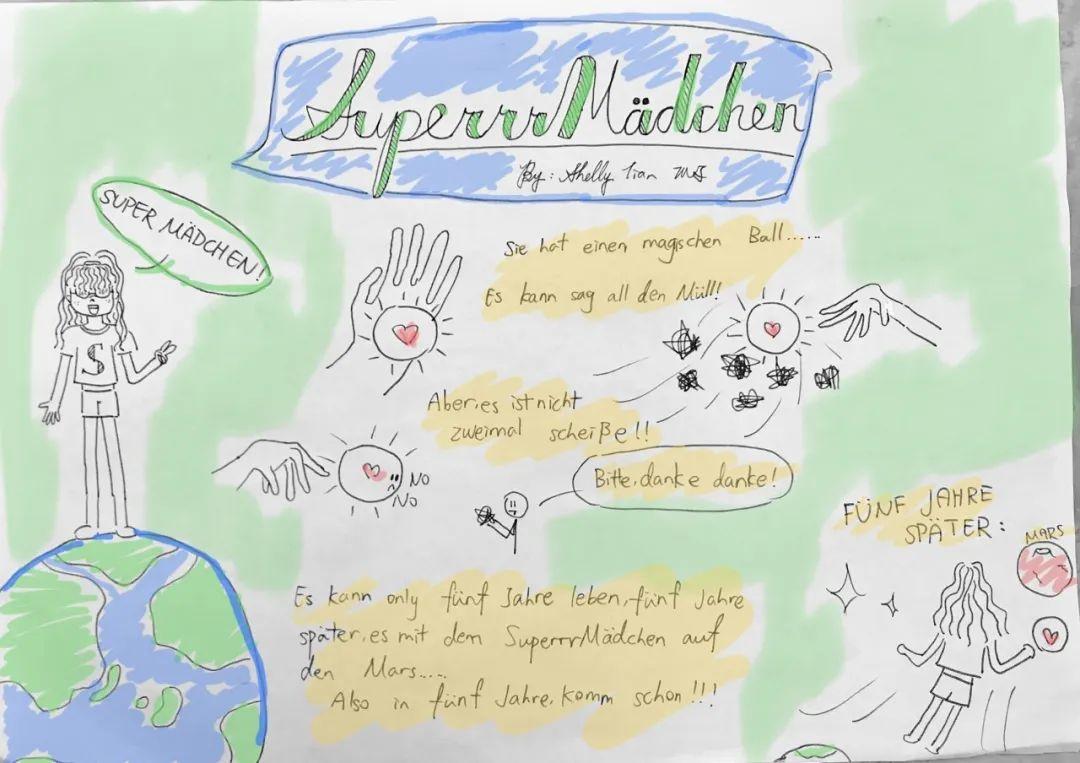 SuperrrMädchen
By: Shelly Tian
SUPER MÄDCHEN!
Sie hat einen magischen Ball......
Es kann sag all den Müll!
S
Aber, es ist nicht
zweimal scheiße!!
NO
NO
Bitte, danke danke!
FÜNF JAHRE
SPÄTER:
MARS
Es kann only fünf Jahre leben, fünf Jahre
später, es mit dem SuperrrMädchen auf
den Mars.....
Also in fünf Jahre, komm schon!!!